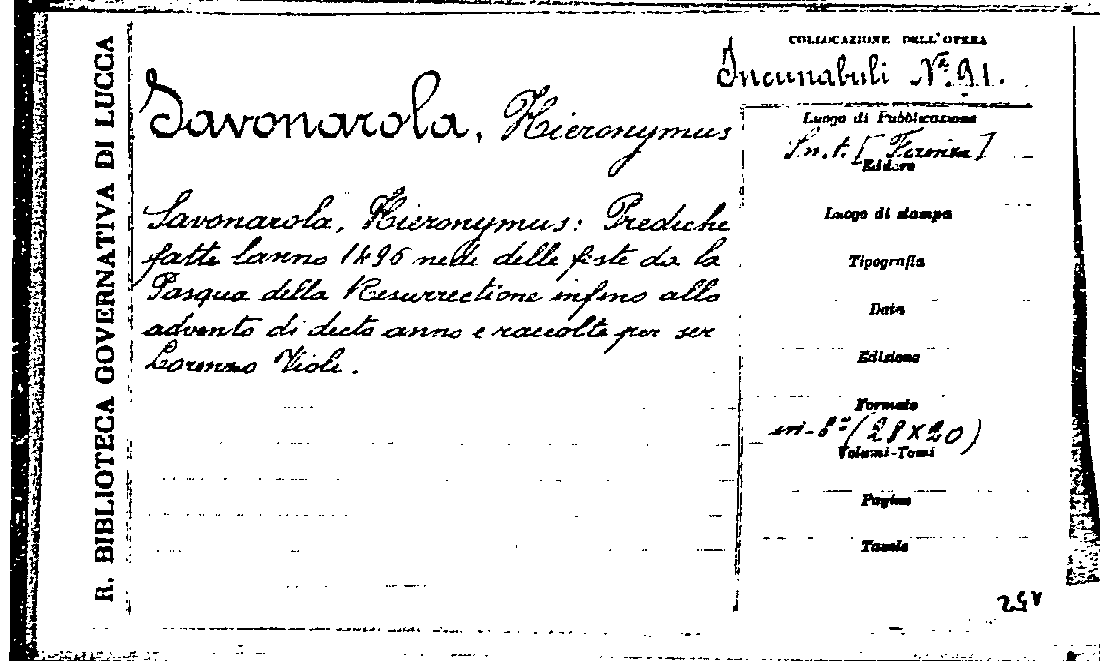 R. BIBLIOTECA GOVERNATIVA DI LUCCA
COLLOCAZIONE DELL'OPERA
Incunabuli Nº. 91.
Savonarola, Hieronymus
Luogo di Pubblicazione
S. n. t. [Firenze]
Editore
Savonarola, Hieronymus: Prediche
fatte lanno 1496 nede delle feste da la
Pasqua della Resurrectione infino allo
advento di decto anno e raccolte per ser
Lorenzo Violi.
Luogo di stampa
Tipografia
Data
Edizione
Formato
in-8º (28 x 20)
Volumi-Tomi
Pagine
Tavole